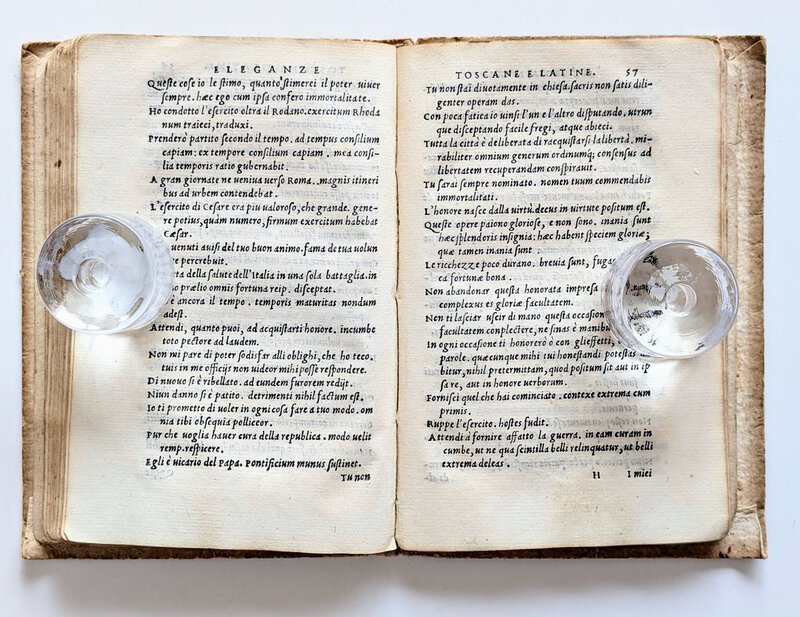 ELEGANZE
Queste cose io le stimo, quanto stimerei il poter uiuer
sempre. hæc ego cum ipsa confero immortalitate.
Ho condotto l'esercito oltra il Rodano. exercitum Rhoda
num traieci, traduxi.
Prenderò partito secondo il tempo. ad tempus consilium
capiam: ex tempore consilium capiam. mea consi-
lia temporis ratio gubernabit.
A gran giornate ne ueniua uerso Roma. magnis itineri
bus ad urbem contendebat.
L'esercito di Cesare era piu ualoroso, che grande. gene-
re potius, quam numero, firmum exercitum habebat
Cæsar.
uenuti auisi del tuo buon animo. fama de tua uolun
re percrebuit.
ta della salute dell'Italia in una sola battaglia. in
no prælio omnis fortuna reip. disceptat.
è ancora il tempo. temporis maturitas nondum
adest.
Attendi, quanto puoi, ad acquistarti honore. incumbe
toto pectore ad laudem.
Non mi pare di poter sodisfar alli oblighi, che ho teco.
tuis in me officijs non uideor mihi posse respondere.
Di nuouo si è ribellato. ad eundem furorem redijt.
Niun danno si è patito. detrimenti nihil factum est.
Io ti prometto di uoler in ogni cosa fare a tuo modo. om
nia tibi obsequia polliceor.
Pur che uoglia hauer cura della republica. modo uelit
remp. respicere.
Egli è uicario del Papa. Pontificium munus sustinet.
Tu non
TOSCANE E LATINE. 57
Tu non stai diuotamente in chiesa. sacris non satis dili-
genter operam das.
Con poca fatica io uinsi l'un e l'altro disputando. utrun
que disceptando facile fregi, atque abieci.
Tutta la città è deliberata di racquistarsi la libertà. mi-
rabiliter omnium generum ordinumq; consensus ad
libertatem recuperandam conspirauit.
Tu sarai sempre nominato. nomen tuum commendabis
immortalitati.
L'honore nasce dalla uirtù. decus in uirtute positum est.
Queste opere paiono gloriose, e non sono. inania sunt
hæc splendoris insignia: hæc habent speciem gloriæ;
quæ tamen inania sunt.
Le ricchezze poco durano. breuia sunt, fuga
ca fortunæ bona.
Non abandonar questa honorata impresa
complexus es gloriæ facultatem.
Non ti lasciar uscir di mano questa occasion
facultatem conplectere, ne sinas è manib
In ogni occasione ti honorerò con gli effetti,
parole. quæcunque mihi tui honestandi potestas
bitur, nihil pretermittam, quod positum sit aut in ip
sa re, aut in honore uerborum.
Fornisci quel che hai cominciato. contexe extrema cum
primis.
Ruppe l'esercito. hostes fudit.
Attendi à fornire affatto la guerra. in eam curam in
cumbe, ut ne qua scintilla belli relinquatur, ut belli
extrema deleas.
H I miei